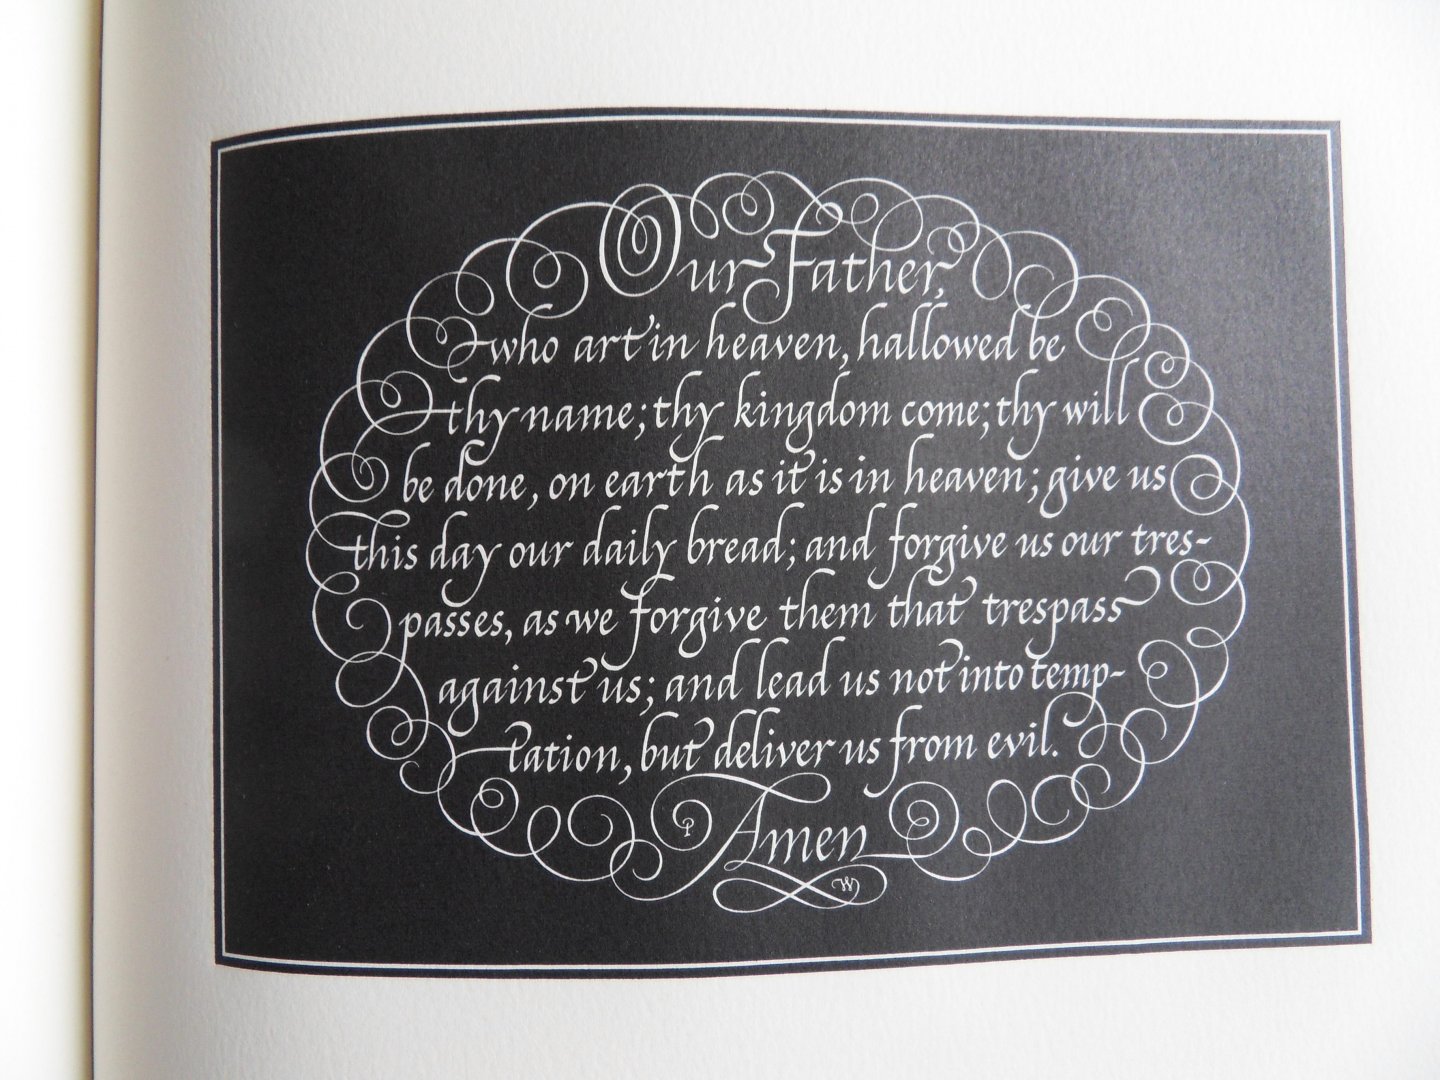 Our Father,
who art in heaven, hallowed be
thy name; thy kingdom come; thy will
be done, on earth as it is in heaven; give us
this day our daily bread; and forgive us our tres-
passes, as we forgive them that trespass
against us; and lead us not into temp-
tation, but deliver us from evil.
Amen